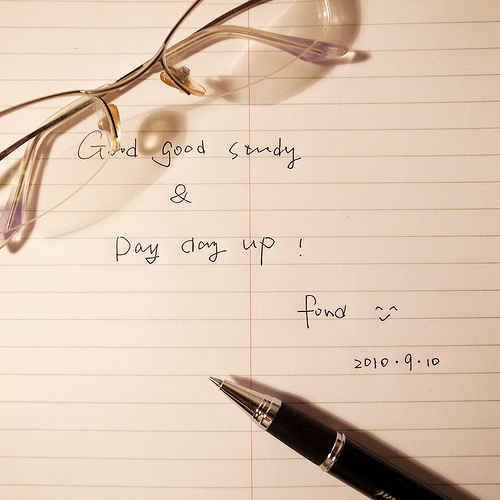 Good good study
&
Day day up !
fond ^‿^
2010.9.10